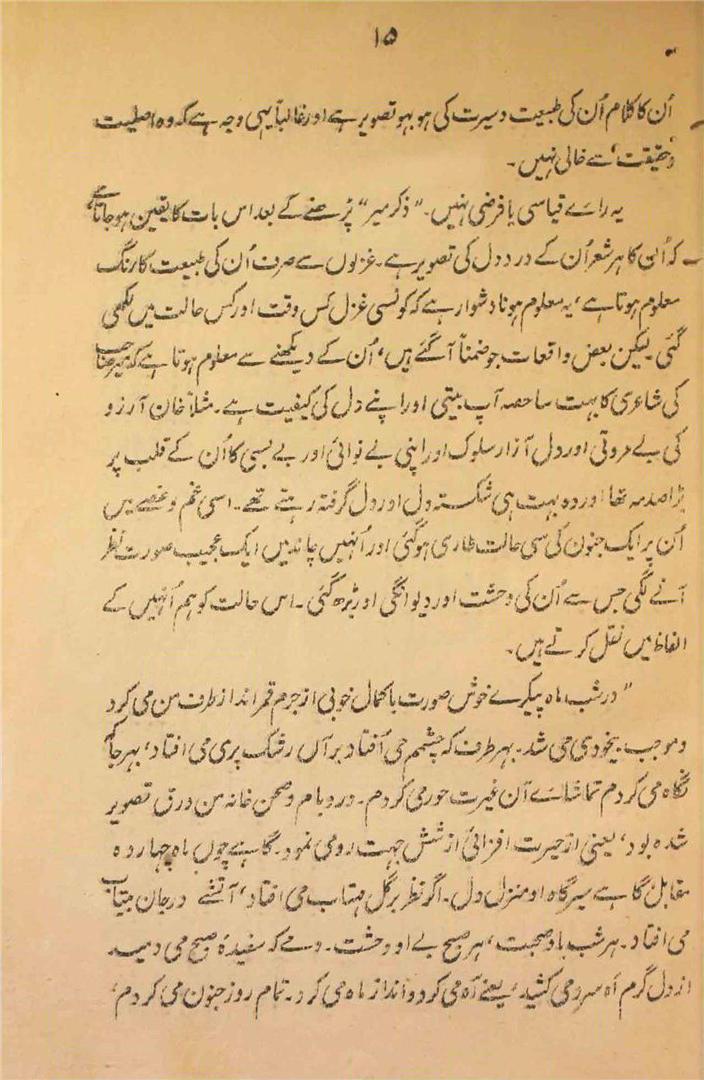 ۱۵
اُن کا کلام اُن کی طبیعت و سیرت کی ہو بہو تصویر ہے اور غالباً یہی وجہ ہے کہ وہ اصلیت
و حقیقت، سے خالی نہیں۔
یہ رائے قیاسی یا فرضی نہیں۔ "ذکر میر" پڑھنے کے بعد اس بات کا یقین ہو جاتا ہے
کہ اُن کا ہر شعر اُن کے درد دل کی تصویر ہے۔ غزلوں سے صرف اُن کی طبیعت کا رنگ
معلوم ہوتا ہے، یہ معلوم ہونا دشوار ہے کہ کونسی غزل کس وقت اور کس حالت میں لکھی
گئی لیکن بعض واقعات جو ضمناً آ گئے ہیں، اُن کے دیکھنے سے معلوم ہوتا ہے کہ میر صاحب
کی شاعری کا بہت سا حصہ آپ بیتی اور اپنے دل کی کیفیت ہے۔ مثلاً خان آرزو
کی بے مروتی اور دل آزار سلوک اور اپنی بے نوائی اور بے بسی کا اُن کے قلب پر
بڑا صدمہ تھا اور وہ بہت ہی شکستہ دل اور دل گرفتہ رہتے تھے۔ اسی غم و غصے میں
اُن پر ایک جنون کی سی حالت طاری ہو گئی اور اُنہیں چاند میں ایک عجیب صورت نظر
آنے لگی جس سے اُن کی وحشت اور دیوانگی اور بڑھ گئی۔ اس حالت کو ہم اُنہیں کے
الفاظ میں نقل کرتے ہیں۔
"در شب ماہ پیکرے خوش صورت با کمال خوبی از جرم قمر انداز طرف من می کرد
و موجب بیخودی می شد۔ بہر طرف کہ چشمم می اُفتاد بر آں رشک پری می افتاد، بہر جا کہ
نگاہ می کردم تماشائے آن غیرت حور می کردم۔ در و بام و صحن خانہ من ورق تصویر
شدہ بود، یعنی از حیرت افزائی از شش جہت رو می نمود۔ گاہے چوں ماہ چہاردہ
مقابل گاہے سیرگاہ او منزل دل۔ اگر نظر بر گل مہتاب می افتاد، آتشے در جان بیتاب
می افتاد۔ ہر شب با و صحبت، ہر صبح بے او وحشت۔ دمے کہ سفیدۂ صبح می دمید
از دل گرم آہ سرد می کشید، یعنے آہ می کرد و انداز ماہ می کرد۔ تمام روز جنون می کردم،